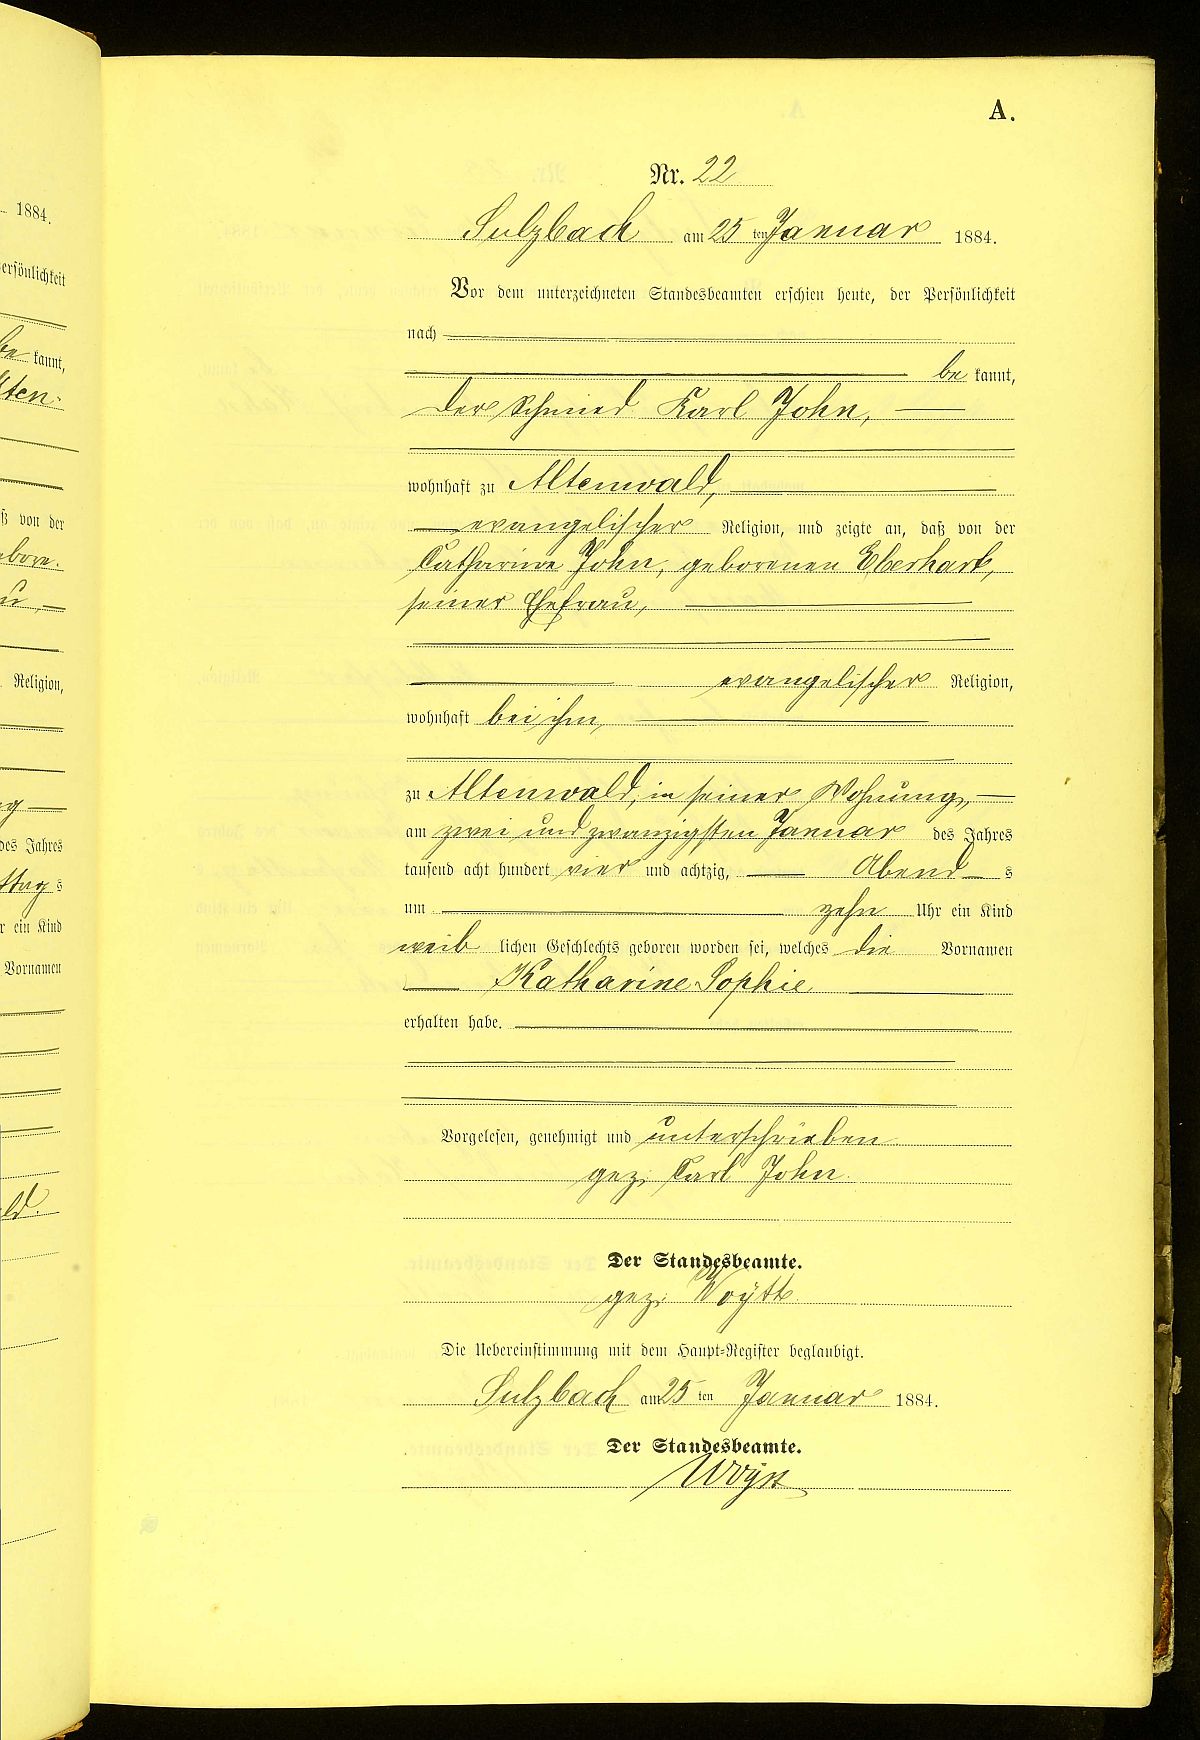 A.
Nr. 22
Sulzbach am 25 ten Januar 1884.
Vor dem unterzeichneten Standesbeamten erschien heute, der Persönlichkeit
nach
be kannt,
der Schmied Karl John,
wohnhaft zu Altenwald,
evangelischer Religion, und zeigte an, daß von der
Catharine John, geborenen Eberhart,
seiner Ehefrau,
evangelischer Religion,
wohnhaft bei ihm,
zu Altenwald, in seiner Wohnung,
am zwei und zwanzigsten Januar des Jahres
tausend acht hundert vier und achtzig, Abend s
um zehn Uhr ein Kind
weib lichen Geschlechts geboren worden sei, welches die Vornamen
Katharine Sophie
erhalten habe.
Vorgelesen, genehmigt und unterschrieben
gez. Carl John.
Der Standesbeamte.
gez. Woytt
Die Uebereinstimmung mit dem Haupt-Register beglaubigt.
Sulzbach am 25 ten Januar 1884.
Der Standesbeamte.
Woytt
1884.
ersönlichkeit
be kannt,
lten-
ß von der
ebore.
u,
Religion,
g
des Jahres
ttag s
r ein Kind
Vornamen
ld.